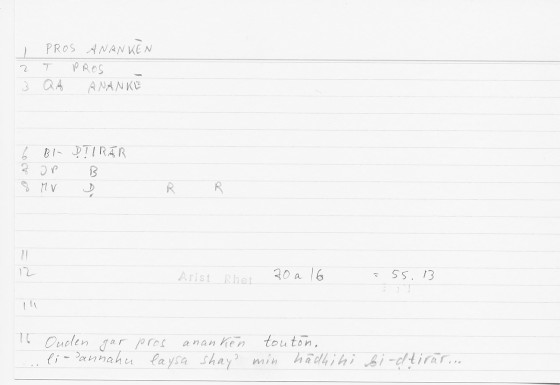 1 PROS ANANKĒN
2 T PROS
3 QA ANANKĒ
6 BI- ḌṬIRĀR
7 JP B
8 MV Ḍ R R
11
12 Arist Rhet 20a16 = 55.13
14
15 Ouden gar pros anankēn toutōn.
.. li-ʾannahu laysa shayʾ min hādhihi bi-ḍṭirār...